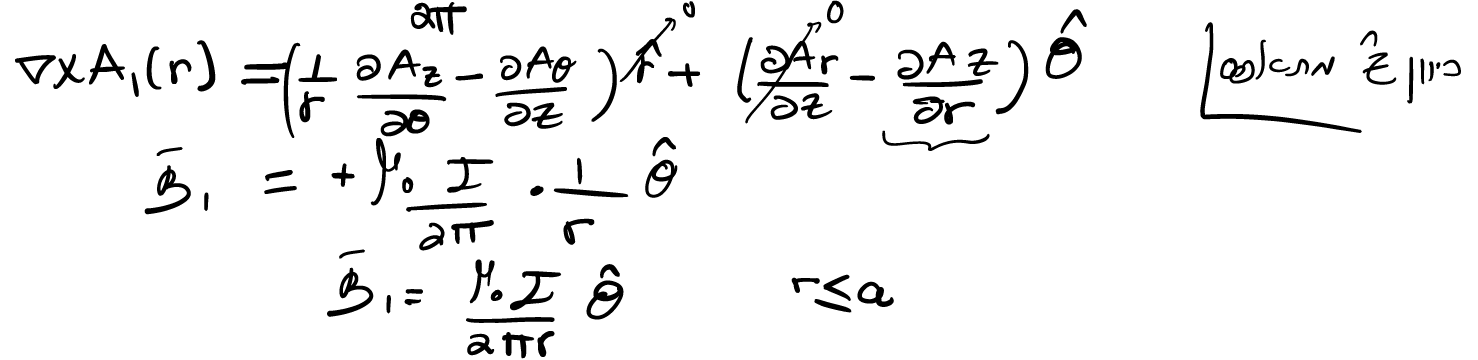 2π
∇×A₁(r) = (1/r ∂A_z/∂θ − ∂A_θ/∂z) r̂ →0 + (∂A_r/∂z →0 − ∂A_z/∂r) θ̂ כיוון ẑ מתאפס
B̄₁ = + μ₀ I/2π · 1/r θ̂
B̄₁ = μ₀I/2πr θ̂ r≤a